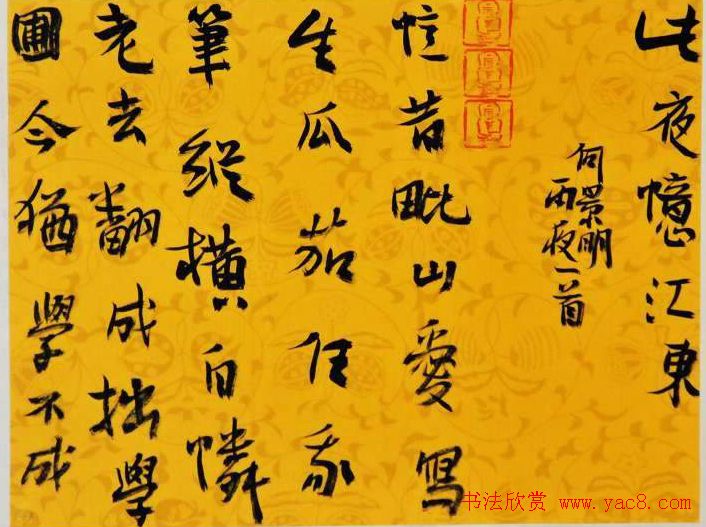 此夜憶江東
何景明
雨夜一首
忆昔毗山爱写
生瓜茄任我
筆縱横自憐
老去翻成拙學
圃今猶學不成
书法欣赏 www.yac8.com